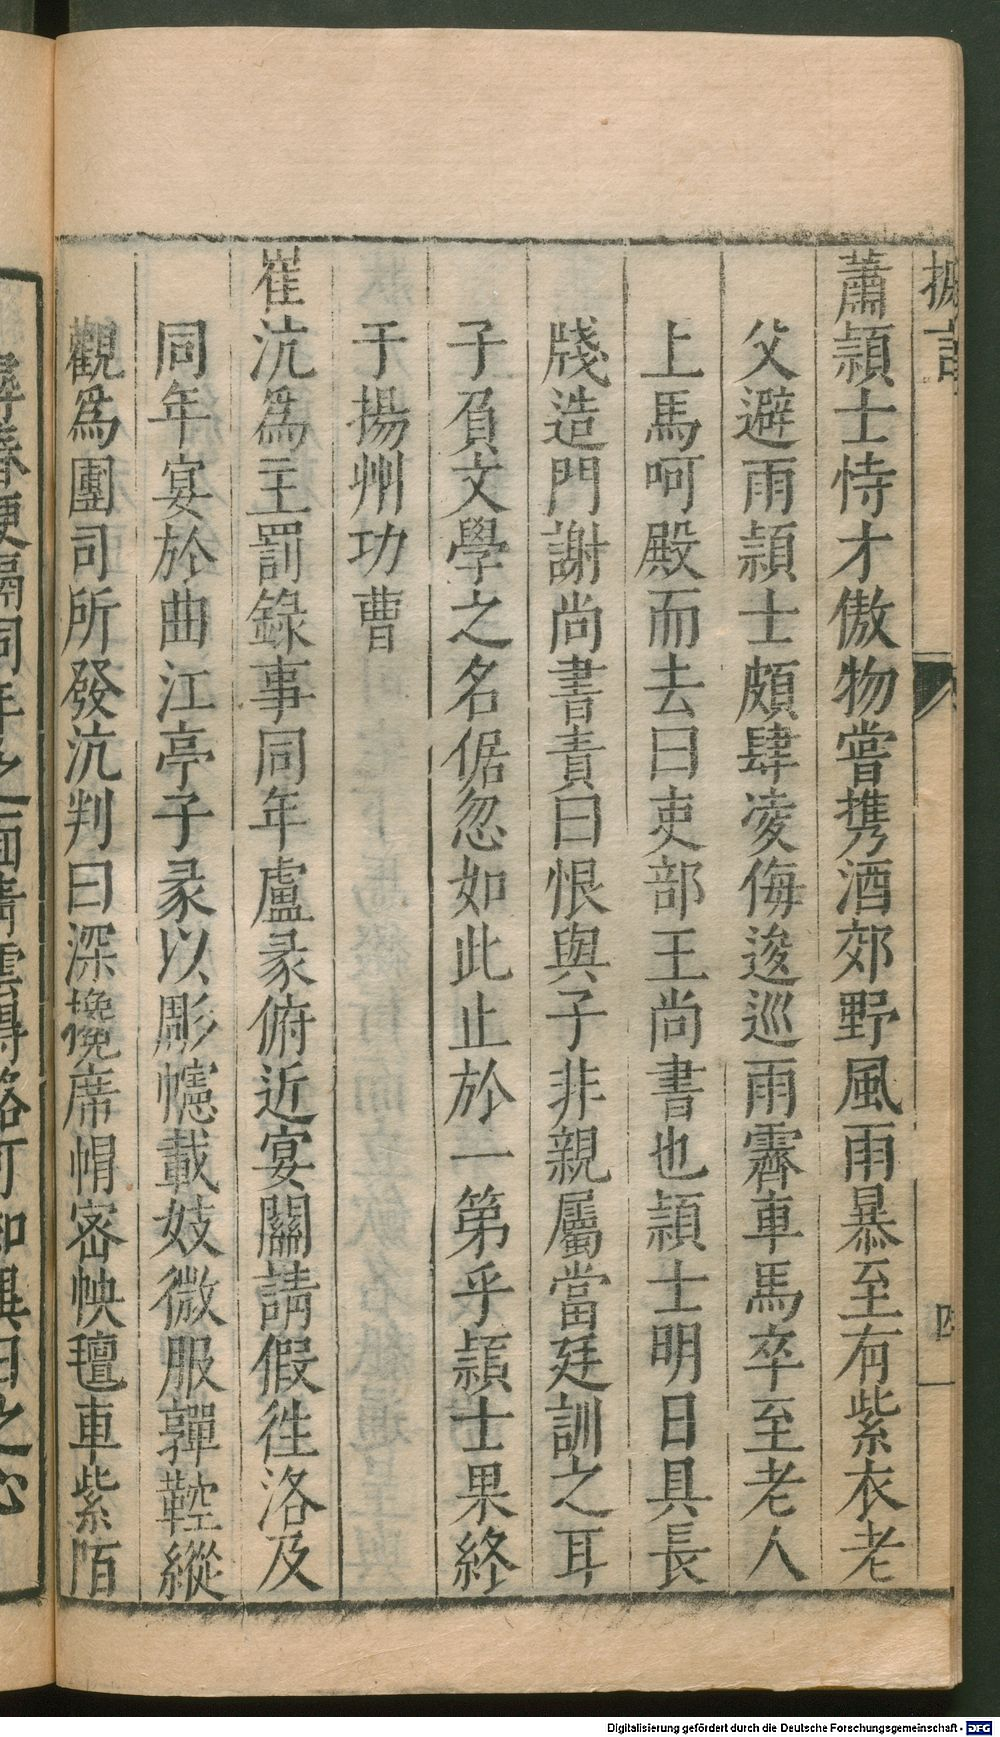 摭言
四
蕭頴士恃才傲物嘗携酒郊野風雨暴至有紫衣老
父避雨頴士頗肆凌侮逡巡雨霽車馬卒至老人
上馬呵殿而去曰吏部王尚書也頴士明日具長
牋造門謝尚書責曰恨與子非親屬當廷訓之耳
子負文學之名倨忽如此止於一第乎頴士果終
于揚州功曹
崔沆為主罰錄事同年盧彖俯近宴關請假往洛及
同年宴於曲江亭子彖以彫幰載妓微服鞸鞚縱
觀為團司所發沆判曰深攙席帽密映氊車紫陌
同年之 青雲得路可知異日之心
Digitalisierung gefördert durch die Deutsche Forschungsgemeinschaft - DFG